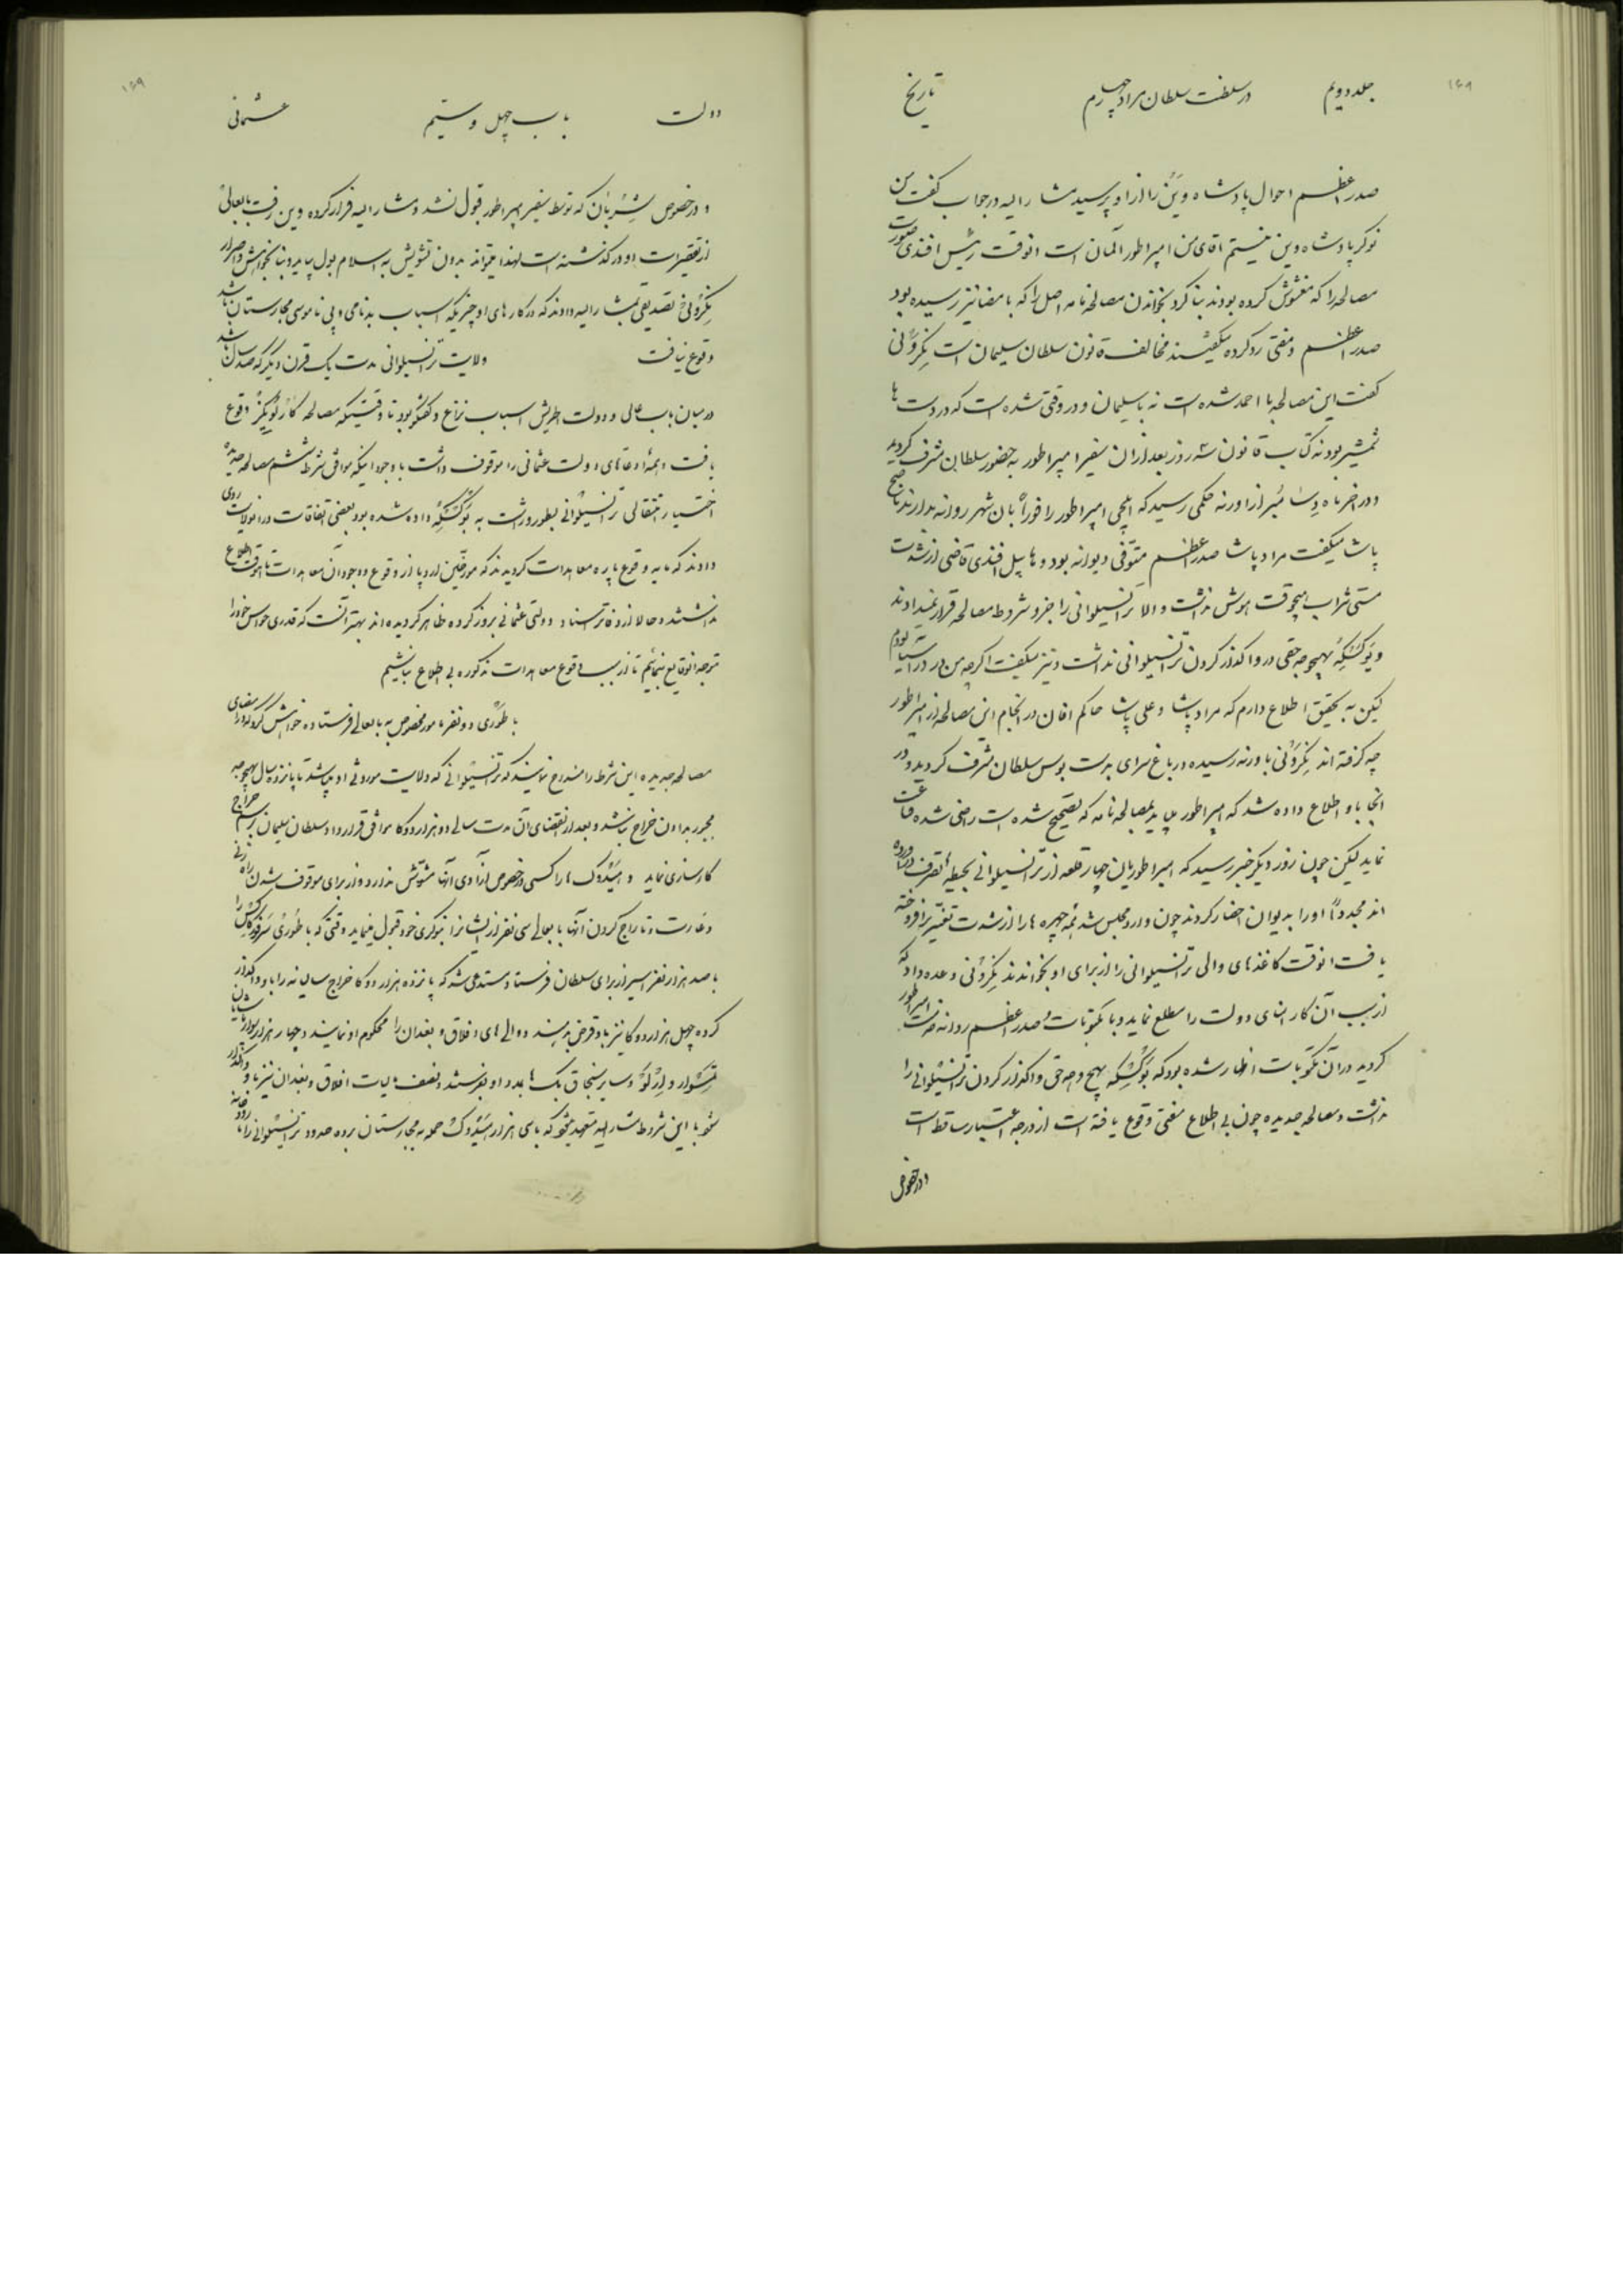 جلد دویم در سلطنت سلطان مراد چهارم تاریخ
صدر اعظم احوال پادشاه وین را از او پرسید مشار الیه در جواب گفت من
نوکر پادشاه وین نیستم اقای من امپراطور المان است انوقت رئیس افندی صورت
مصالحه را که مغشوش کرده بودند بنا کرد بخواندن مصالحه نامه اصل را که بامضا نیز رسیده بود
صدر اعظم و مفتی رد کرده میگفتند مخالف قانون سلطان سلیمان است نکرونی
گفت این مصالحه با احمد شده است نه با سلیمان و در وقتی شده است که در دست ها
شمشیر بود نه کتاب قانون سه روز بعد از ان سفیر امپراطور به حضور سلطان مشرف گردید
و در اخر ماه دسامبر از ادرنه حکمی رسید که ایلچی امپراطور را فورا بان شهر روانه بدارند ناصح
پاشا میگفت مراد پاشا صدر اعظم متوفی دیوانه بود و هابیل افندی قاضی از شدت
مستی شراب هیچوقت هوش نداشت و الا ترانسیلوانی را جزو شروط مصالحه قرار نمیدادند
و بوکسکه بهیچوجه حقی در واگذار کردن ترانسیلوانی نداشت و نیز میگفت اگرچه من در آسیا بودم
لیکن به تحقیق اطلاع دارم که مراد پاشا و علی پاشا حاکم افان در انجام این مصالحه از امپراطور
چه گرفته اند نکرونی بادرنه رسیده در باغ سرای بدست بوس سلطان مشرف گردید و در
انجا باو اطلاع داده شد که امپراطور باید بمصالحه نامه که تصحیح شده است راضی شده قناعت
نماید لیکن چون روز دیگر خبر رسید که امپراطوریان چهار قلعه از ترانسیلوانی بحیطه تصرف دراورده
اند مجددا او را بدیوان احضار کردند چون وارد مجلس شد همه چهره ها را از شدت تغیر برافروخته
یافت انوقت کاغذهای والی ترانسیلوانی را از برای او بخواندند نکرونی وعده داد که
از سبب آن کار امنای دولت را مطلع نماید و با مکتوبات صدر اعظم روانه خدمت امپراطور
گردید در آن مکتوبات اظهار شده بود که بوکسکه بهیچ وجه حق واگذار کردن ترانسیلوانی را
نداشت و مصالحه جدیده چون بی اطلاع مفتی وقوع یافته است از درجه اعتبار ساقط است
و در خصوص
دولت باب چهل و ستیم عثمانی
و در خصوص شربان که توسط سفیر امپراطور قبول نشد و مشار الیه فرار کرده وین رفت بابعالی
از تقصیرات او درگذشته است لهذا میتواند بدون تشویش به اسلامبول بیاید و بنا بخواهش و اصرار
نکرونی تصدیقی بمشار الیه دادند که در کارهای او چیزیکه اسباب بدنامی و بی ناموسی مجارستان باشد
وقوع نیافت ولایت ترانسیلوانی مدت یک قرن دیگر که صد سال باشد
در میان باب عالی و دولت اطریش اسباب نزاع و گفتگو بود تا وقتیکه مصالحه کارلویکز وقوع
یافت و همه ادعاهای دولت عثمانی را موقوف داشت با وجود اینکه موافق شرط ششم مصالحه جدیده
اختیار انتقالی ترانسیلوانی بطور وراثت به بوکسکه داده شده بود بعضی اتفاقات در انولایت روی
دادند که مایه وقوع پاره معاهدات گردیدند که مورخین اروپا از وقوع و وجود آن معاهدات تا انوقت اطلاع
نداشتند و حالا از دفاتر اسناد دولتی عثمانی بروز کرده ظاهر گردیده اند بهتر آنست که قدری حواس خود را
متوجه انوقایع نمائیم تا از سبب وقوع معاهدات مذکوره بی اطلاع نباشیم
باطوری دو نفر مامور مخصوص به بابعالی فرستاده خواهش کرد که در امضای
مصالحه جدیده این شرط را مندرج نمایند که ترانسیلوانی که ولایت موروثی او میباشد تا پانزده سال بهیچوجه
مجبور بدادن خراج نباشد و بعد از انقضای آن مدت سالی ده هزار دوکا موافق قرارداد سلطان سلیمان برسم خراج
کارسازی نماید و هیدوک ها را کسی در خصوص آزادی آنها مشوش ندارد و از برای موقوف شدن راه زنی
و غارت و تاراج کردن آنها بابعالی سی نفر از ایشانرا بنوکری خود قبول مینماید وقتی که باطوری سرفوکاس را
با صد هزار نفر اسیر از برای سلطان فرستاد مستدعی شد که پانزده هزار دوکا خراج سالیانه را باو واگذار
کرده چهل هزار دوکا نیز باو قرض بدهند و والی های افلاق و بغدان را محکوم او نمایند و چهار هزار سوار با پاشایان
تمسوار و ارلو و سایر سنجاق بیک ها بمدد او بفرستند و نصف مالیات افلاق و بغدان نیز باو واگذار
شود با این شروط مشار الیه متعهد میشود که با سی هزار هیدوک حمله به مجارستان برده حدود ترانسیلوانی را تا رودخانه